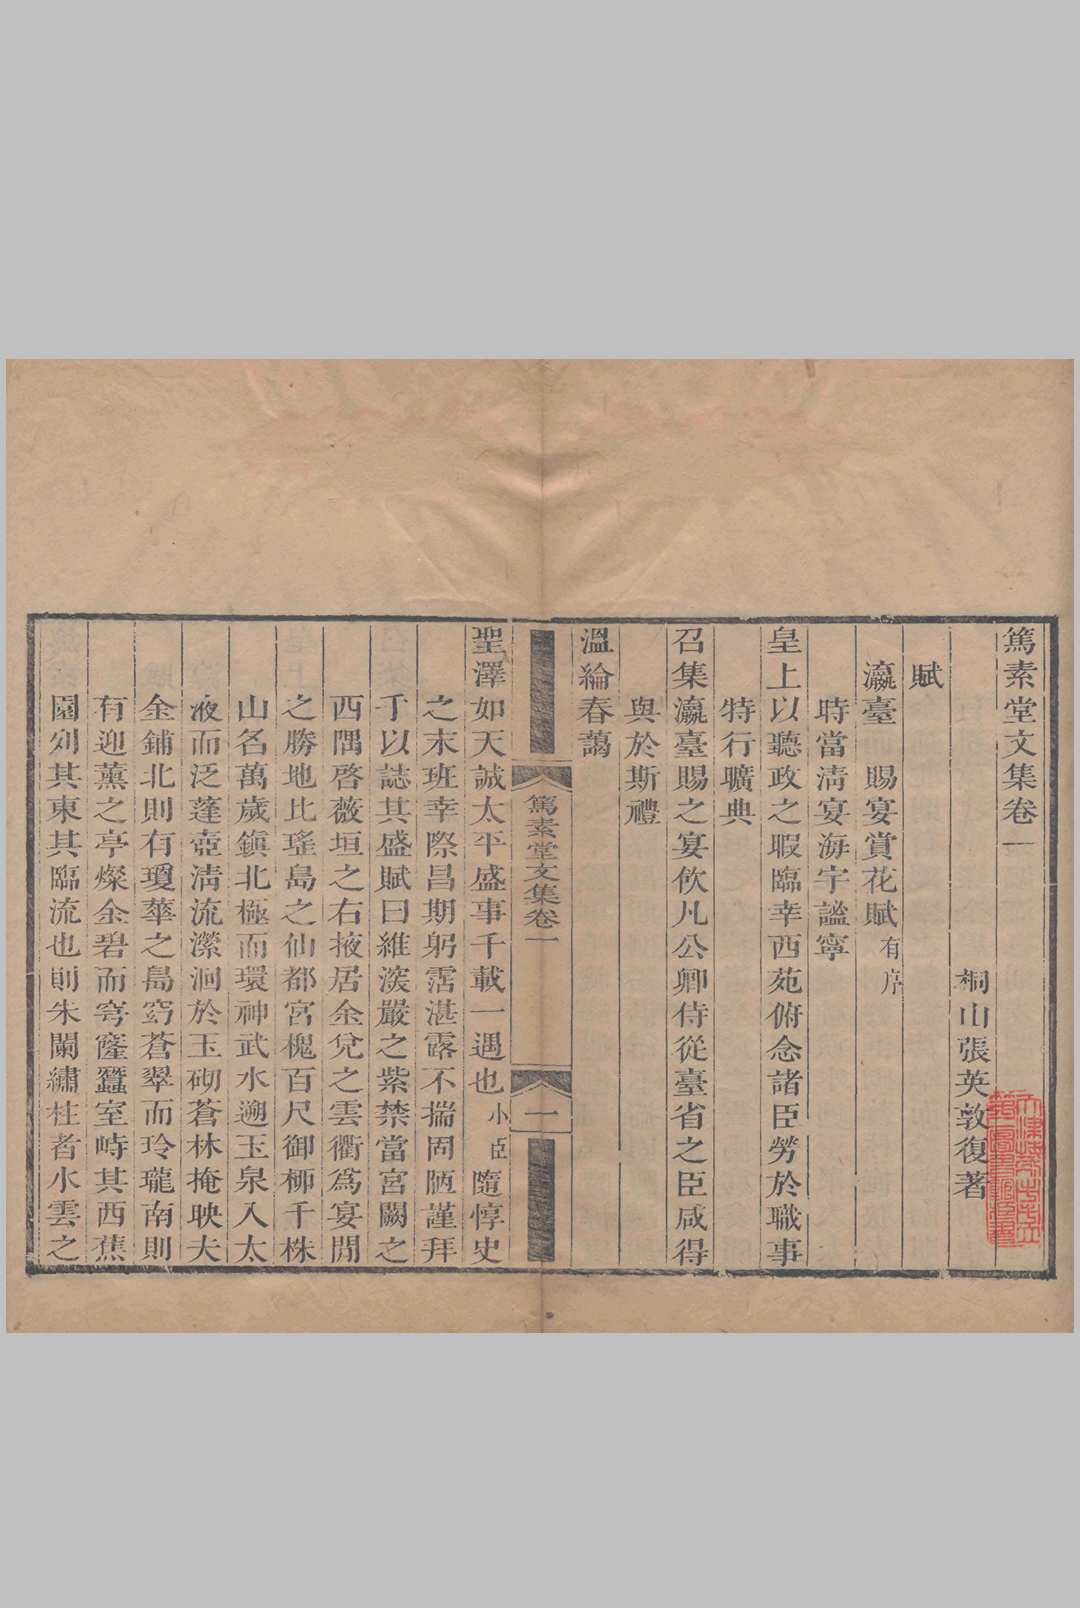 篤素堂文集卷一
桐山張英敦復著
賦
瀛臺 賜宴賞花賦有序
時當淸宴海宇謐寧
皇上以聽政之暇臨幸西苑俯念諸臣勞於職事
特行曠典
召集瀛臺賜之宴飲凡公卿侍從臺省之臣咸得
與於斯禮
溫綸春藹
篤素堂文集卷一
一
聖澤如天誠太平盛事千載一遇也小臣隨惇史
之末班幸際昌期躬霑湛露不揣固陋謹拜
手以誌其盛賦曰維深嚴之紫禁當宮闕之
西隅啓薇垣之右掖居金兌之雲衢爲宴閒
之勝地比瑤島之仙都宮槐百尺御柳千株
山名萬歲鎭北極而環神武水遡玉泉入太
液而泛蓬壺淸流瀠洄於玉砌蒼林掩映夫
金鋪北則有瓊華之島窈蒼翠而玲瓏南則
有迎薰之亭燦金碧而穹窿蠶室峙其西蕉
園列其東其臨流也則朱闌繡柱者水雲之